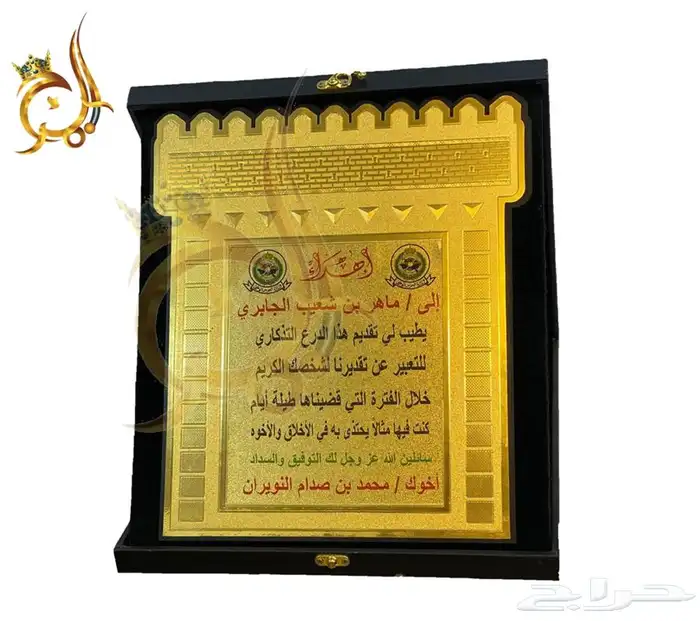 إهداء
إلى / ماهر بن شعيب الجابري
يطيب لي تقديم هذا الدرع التذكاري
للتعبير عن تقديرنا لشخصك الكريم
خلال الفترة التي قضيناها طيلة أيام
كنت فيها مثالا يحتذى به في الأخلاق والأخوه
سائلين الله عز وجل لك التوفيق والسداد
أخوك / محمد بن صدام النويران
حراج